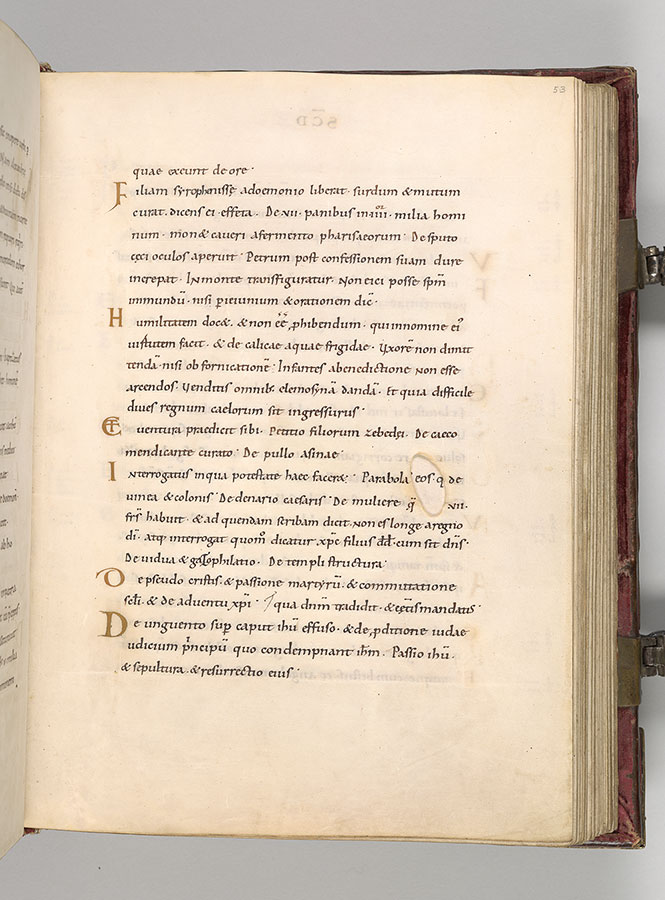 53
quae exeunt de ore·
Filiam syrophenissę adoemonio liberat· surdum &mutum
curat· dicens ei· effeta· De xii· panibus in·iiii· milia homi
num· mon& caueri afermento pharisaeorum· De sputo
cęci oculos aperuit· Petrum post confessionem suam dure
increpat· In monte transfiguratur· Non eici posse spm̄
immundū· nisi per ieiunium & orationem dic̄·
Humilitatem doc&· & non eē̄ phibendum· qui innomine ei'
uirtutem facit· & de calicae aquae frigidae· Uxorē non dimit
tendā· nisi ob fornicationē· Infantes abenedictione non esse
arcendos· Uenditis omnib; elemosynā dandā· Et quia difficile
diues regnum caelorum sit ingressurus·
Et uentura praedicit sibi· Petitio filiorum zebedei· De caeco
mendicante curato· De pullo asinae·
Interrogatus inqua potestate haec facer&· Parabola eos q̄ de
uinea & colonis· De denario caesaris· De muliere q̄ ·xii·
frs̄ habuit· & ad quendam scribam dicit· Non es longe aregno
dī· atq; interrogat quom̊ dicatur xp̄c filius dd̄· cum sit dn̄s·
De uidua & gazophilatio· De templi structura·
De pseudo cristis· & passione martyrū· & commutatione
scl̄i· & de aduentu xp̄i· qua dnm̄ tradidit· &
De unguento sup caput ihū effuso· & de pditione iudae
iudicium principū quo condempnant ihm̄· Passio ihū·
& sepultura· & resurrectio eius·